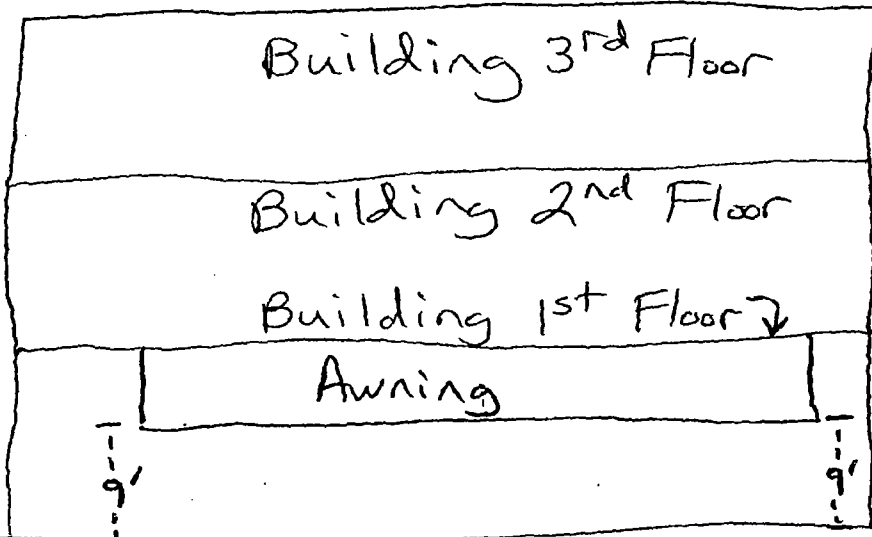 Building 3rd Floor
Building 2nd Floor
Building 1st Floor
Awning
9' 9'